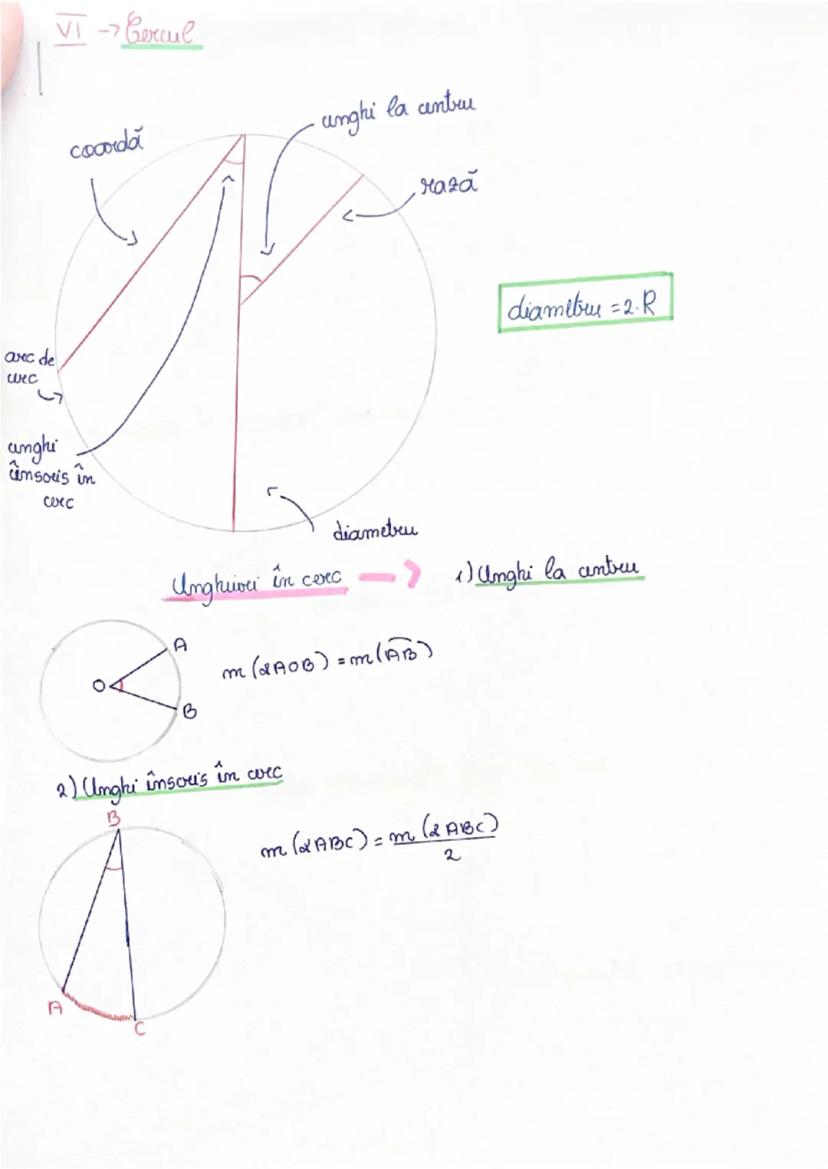 VI → Cercul
unghi la centru
coardă
rază
diametru = 2·R
arc de
cerc
unghi
înscris în
cerc
diametru
Unghiuri în cerc → 1) Unghi la centru
A
O
B
m(∢AOB) = m(A͡B)
2) Unghi înscris în cerc
B
m(∢ABC) = m(∢ABC)
2
A
C